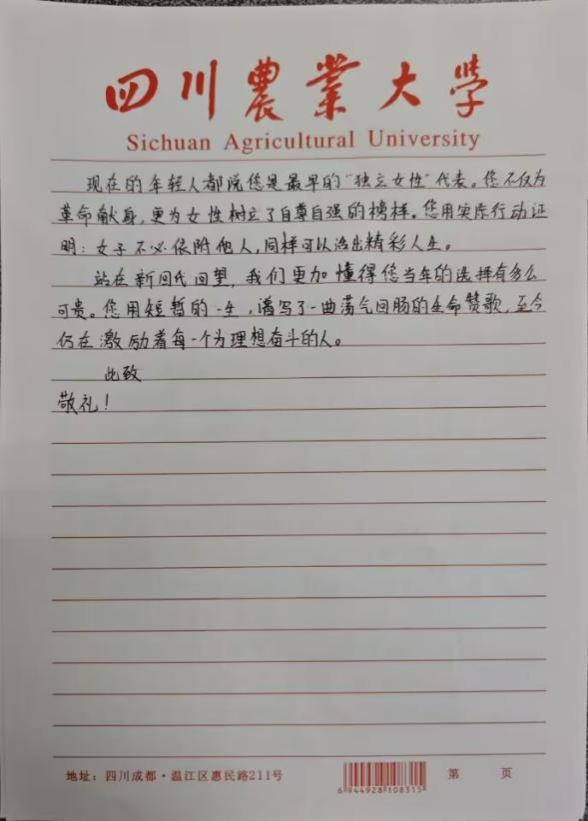 四川農業大学
Sichuan Agricultural University
现在的年轻人都说您是最早的“独立女性”代表。您不仅为
革命献身,更为女性树立了自尊自强的榜样。您用实际行动证
明:女子不必依附他人,同样可以活出精彩人生。
站在新时代回望,我们更加懂得您当年的选择有多么
可贵。您用短暂的一生,谱写了一曲荡气回肠的生命赞歌,至今
仍在激励着每一个为理想奋斗的人。
此致
敬礼!
地址:四川成都·温江区惠民路211号
6944928108315
第 页